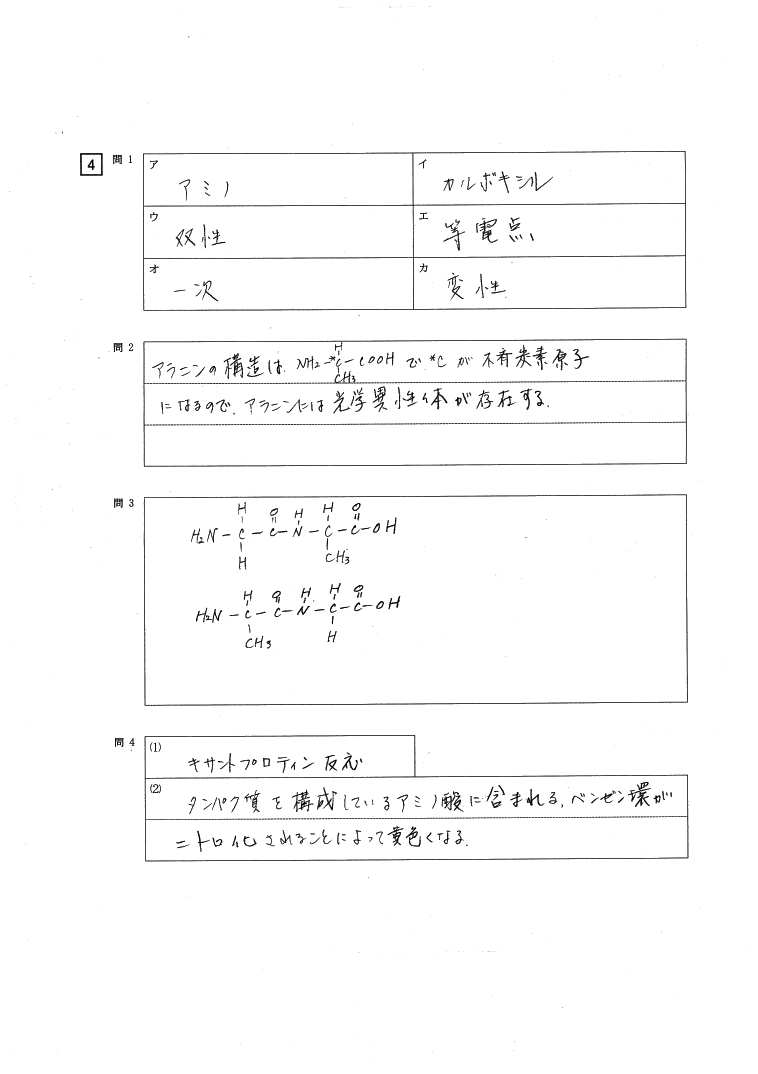 4
問1
ア アミノ
イ カルボキシル
ウ 双性
エ 等電点
オ 一次
カ 変性
問2
H
アラニンの構造は NH2-*C-COOH で *C が 不斉炭素原子
CH3
になるので、アラニンには光学異性体が存在する.
問3
H O H H O
H2N-C-C-N-C-C-OH
H CH3
H O H H O
H2N-C-C-N-C-C-OH
CH3 H
問4
(1) キサントプロテイン反応
(2) タンパク質を構成しているアミノ酸に含まれる、ベンゼン環が
ニトロ化されることによって黄色くなる.